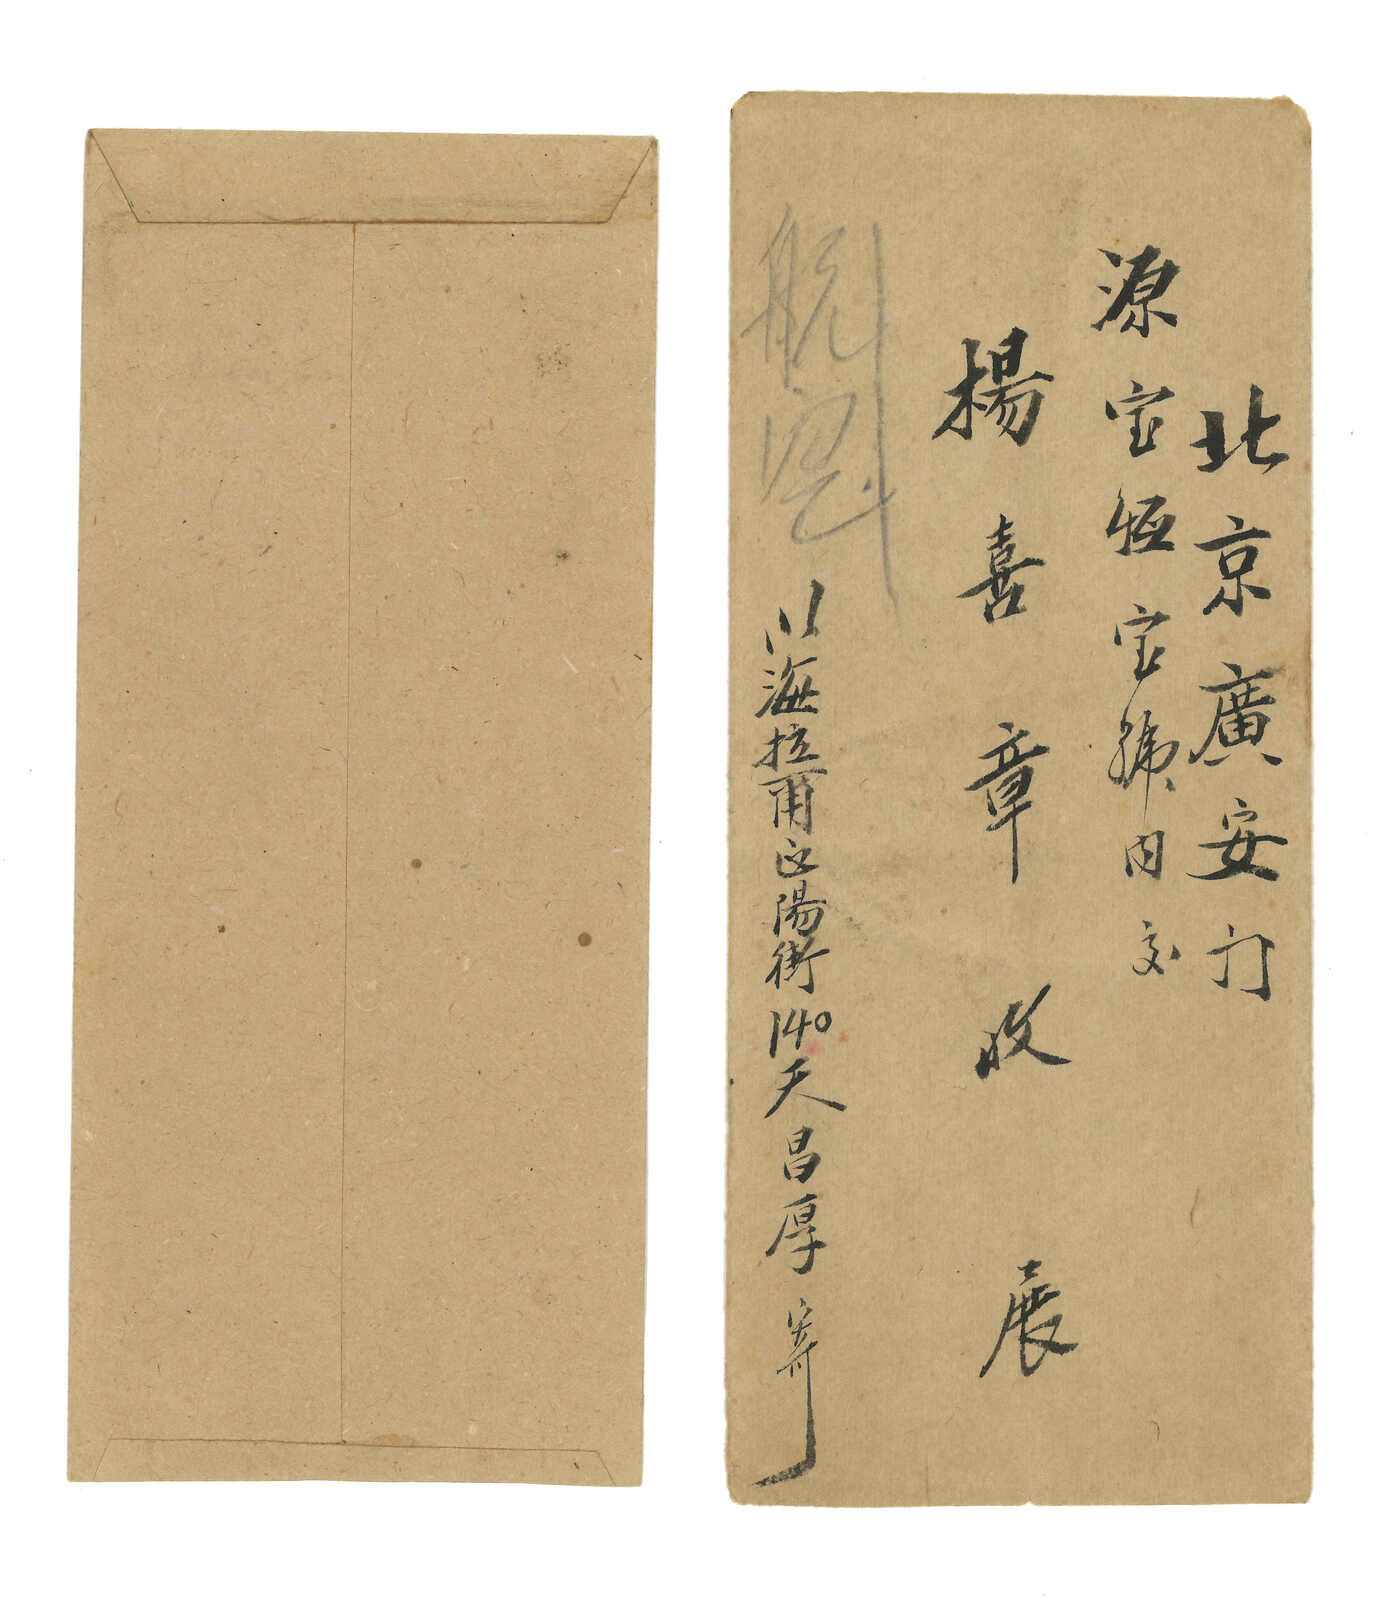 北京廣安门
源宝恒宝號内交
楊喜章收展
海拉爾正陽街140天昌厚寄
航空